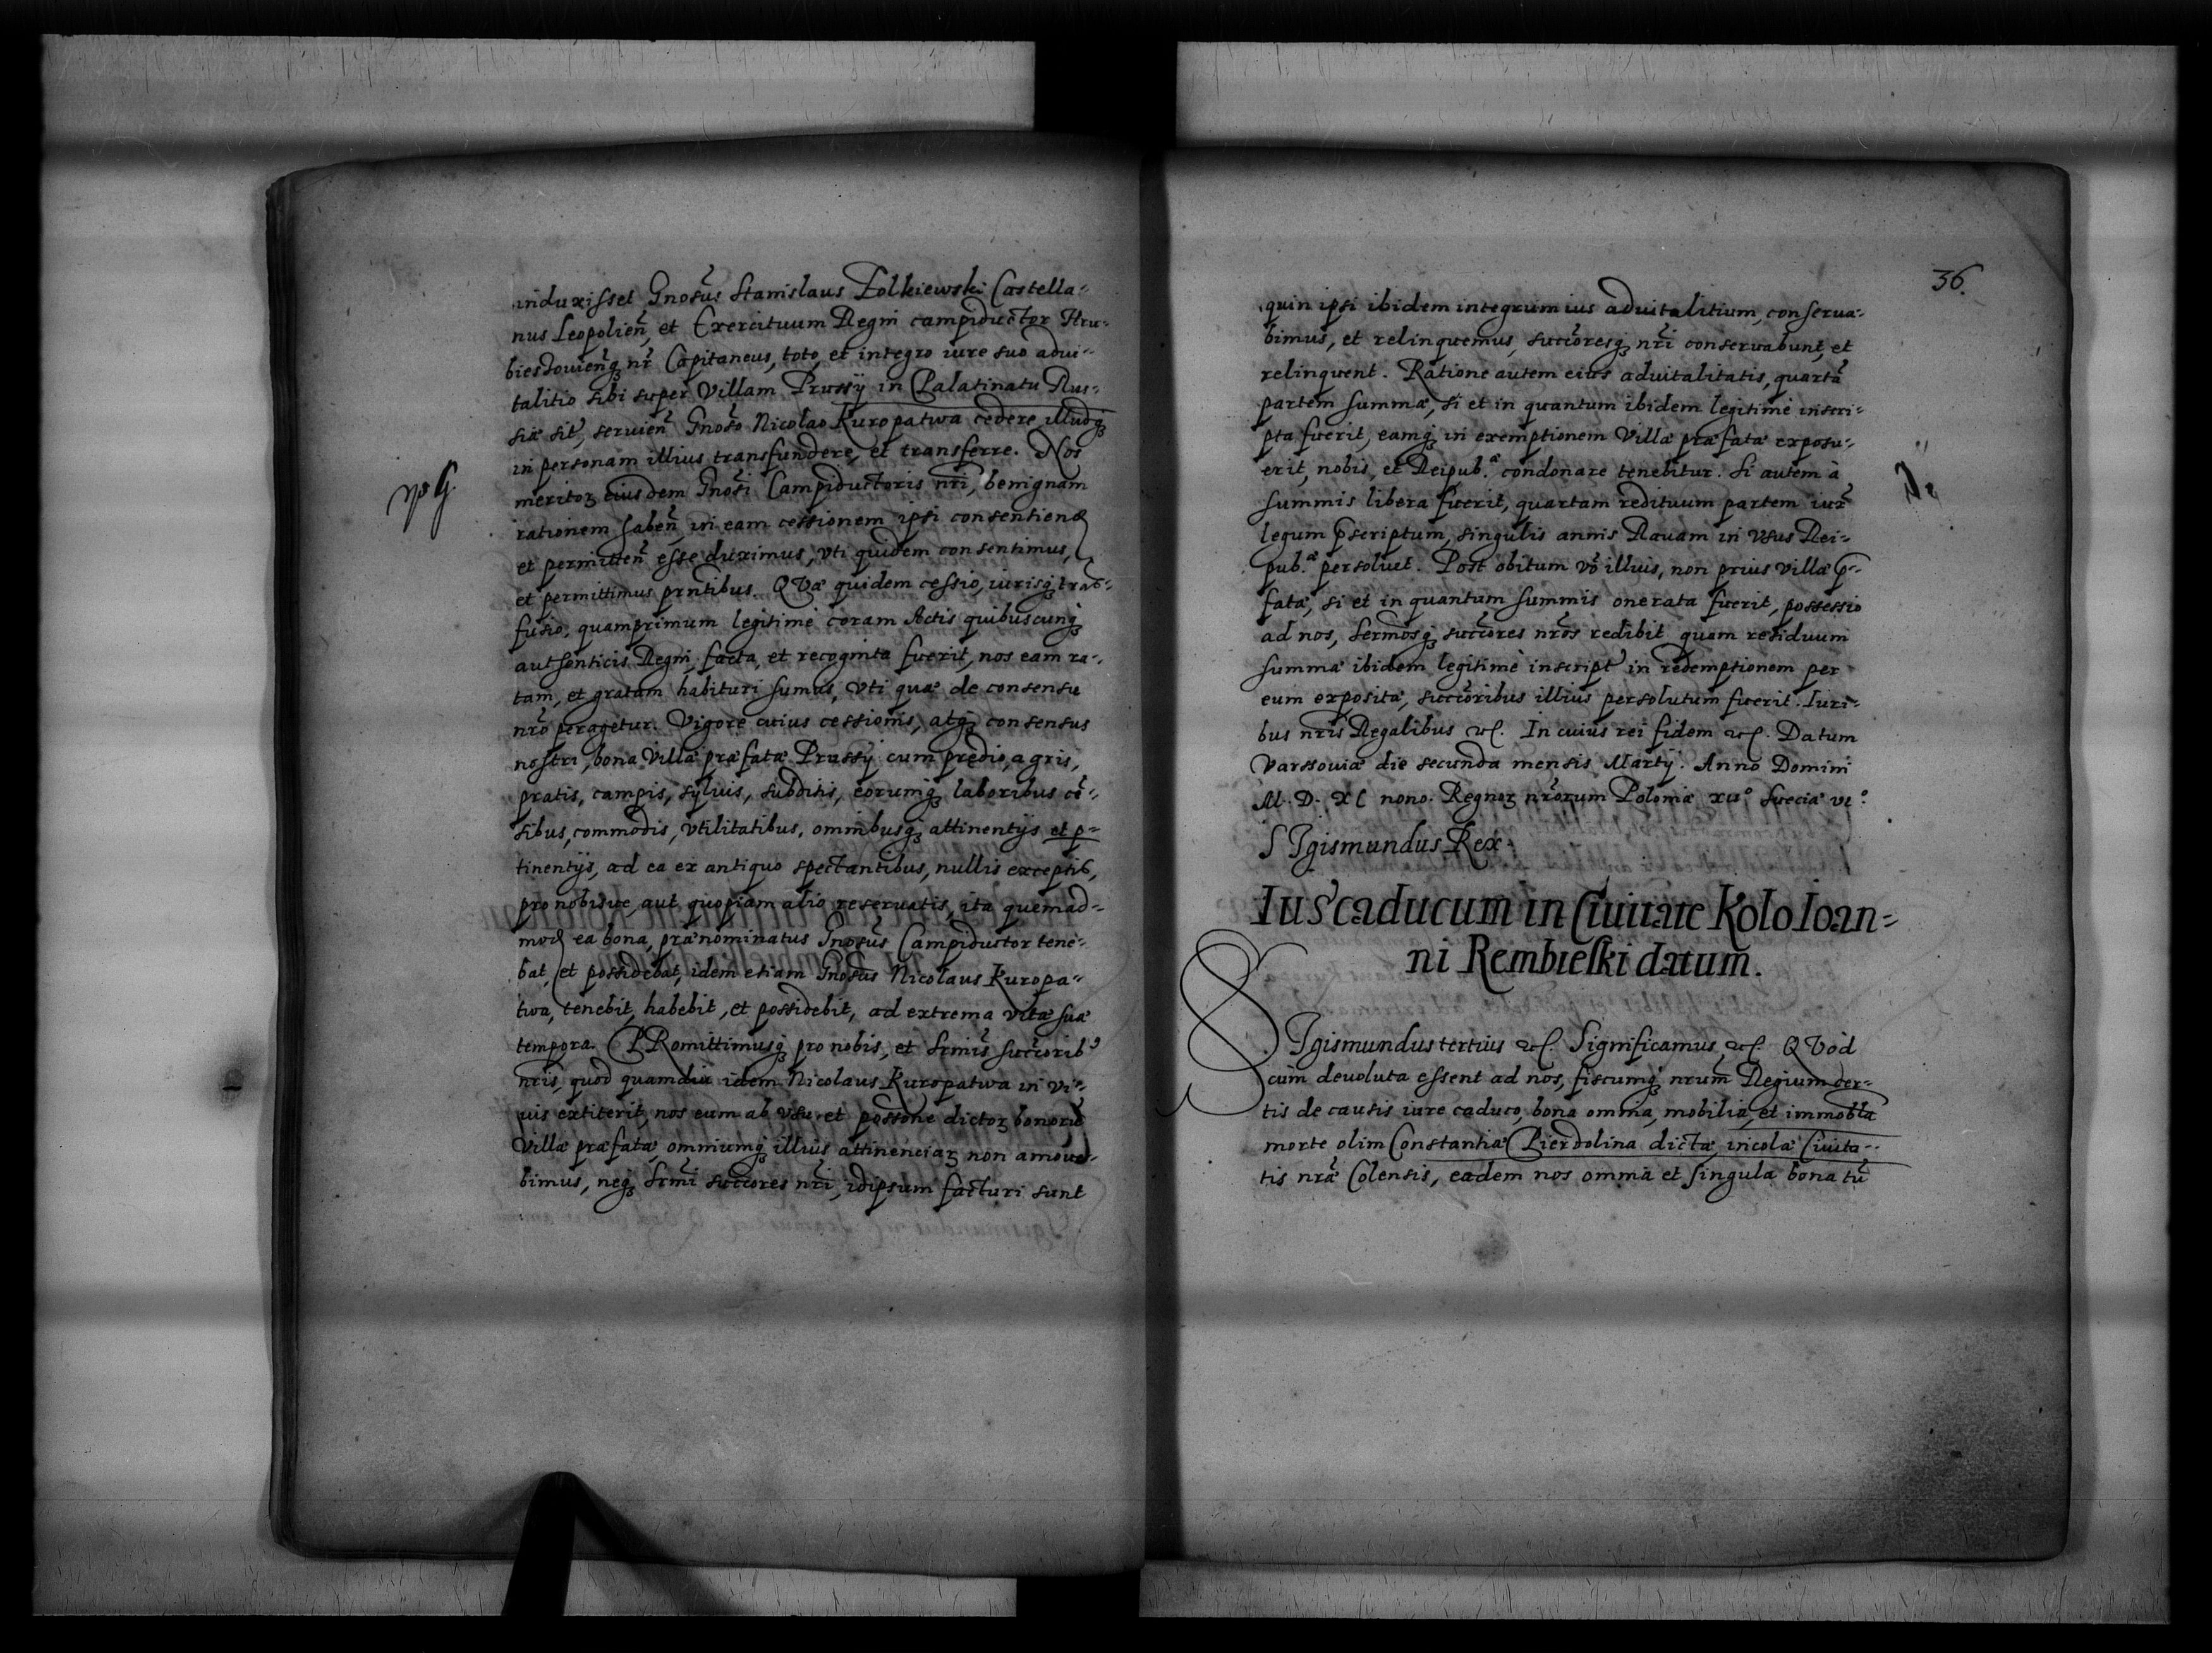 induxisset Gnosus Stanislaus Zolkiewski Castella-
nus Leopolien, et Exercituum Regni campiductor Hru-
biessouienq nr Capitaneus, toto, et integro iure suo adui-
talitio sibi super Villam Prussÿ in Palatinatu Rus-
siæ sit, seruien Gnoso Nicolao Kuropatwa cedere, illudq
in personam illius transfundere, et transferre. Nos
meritoꝝ eiusdem Gnosi Campiductoris nri, benignam
rationem haben, in eam cessionem ipsi consentiend
et permitten esse duximus, vti quidem consentimus,
et permittimus prntibus. QVæ quidem cessio, iurisq trās-
fusio, quamprimum legitimè coram Actis quibuscunq
authenticis Regni facta, et recognita fuerit, nos eam ra-
tam, et gratam habituri sumus, vti quæ de consensu
nrō peragetur. Vigore cuius cessionis, atq consensus
nostri, bona Villæ præfatæ Prussÿ cum prædio, agris,
pratis, campis, syluis, subditis, eorumq laboribus cē-
sibus, commodis, vtilitatibus, omnibusq attinentÿs et p-
tinentÿs, ad ea ex antiquo spectantibus, nullis exceptis,
pro nobisue, aut quopiam alio reseruatis, ita quemad-
mod ea bona, prænominatus Gnosus Campiductor tene-
bat, et possidebat, idem etiam Gnosus Nicolaus Kuropa-
twa, tenebit, habebit, et possidebit, ad extrema vitæ suæ
tempora. PRomittimusq pro nobis, et Srmis succorib9
nris, quod quamdiu idem Nicolaus Kuropatwa in vi-
uis extiterit, nos eum ab vsu et possone dictoꝝ bonorū
Villæ præfatæ, omniumq illius attinenciaꝝ non amoue-
bimus, neq Srmi succores nri, idipsum facturi sunt
36.
quin ipsi ibidem integrum ius aduitalitium, conserua-
bimus, et relinquemus, succoresq nri conseruabunt, et
relinquent. Ratione autem eius aduitalitatis, quartā
partem summæ, si et in quantum ibidem legitimè inscri-
pta fuerit, eamq in exemptionem Villæ præfatæ exposu-
erit, nobis, et Reipub.æ condonare tenebitur. Si autem à
summis libera fuerit, quartam redituum partem iux
legum pscriptum, singulis annis Rauam in vsus Rei-
pub.æ persoluet. Post obitum vō illius, non prius villæ p-
fatæ, si et in quantum summis onerata fuerit, possessio
ad nos, Sermosq succores nros redibit quam residuum
summæ ibidem legitimè inscriptæ in redemptionem per
eum expositæ, succoribus illius persolutum fuerit. Iuri-
bus nris Regalibus etc. In cuius rei fidem etc. Datum
Varssouiæ die secunda mensis Martÿ. Anno Domini
M. D. XC nono. Regnoꝝ nrorum Poloniæ XII° Sueciæ VI°
SIgismundus Rex.
Ius caducum in Ciuitate Kolo Ioan-
ni Rembielki datum.
SIgismundus tertius etc. Significamus, etc. QVòd
cùm deuoluta essent ad nos, fiscumq nrum Regium cer-
tis de causis iure caduco, bona omnia, mobilia, et immobla
morte olim Constantiæ Pierdolina dictæ, incolæ Ciuita-
tis nræ Colensis, eadem nos omnia et singula bona tū